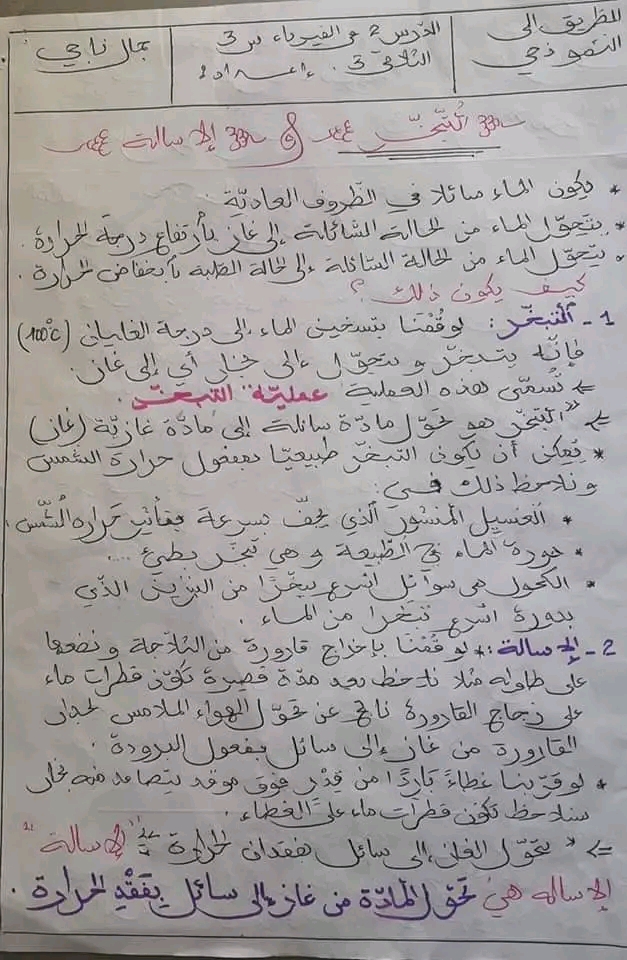 الطريق إلى النموذجي
الدرس 2 في الفيزياء س 3
الثلاثي 3. إعداد:
جمال ناجي
التبخّر و الإسالة
* يكون الماء سائلا في الظروف العاديّة
* يتحوّل الماء من الحالة السّائلة إلى غاز بأرتفاع درجة الحرارة.
* يتحوّل الماء من الحالة السّائلة إلى الحالة الصّلبة بآنخفاض الحرارة.
كيف يكون ذلك؟
1 - التبخّر: لو قُمْنَا بتسخين الماء إلى درجة الغليان (100°C)
فإنّه يتبخّر و يتحوّل إلى بخار أي إلى غاز.
⇐ تُسمّى هذه العملية عمليّة التبخّر.
⇐ "التبخّر هو تحوّل مادّة سائلة إلى مادّة غازيّة (غاز)
* يُمكن أن يكون التبخّر طبيعيّا بمفعول حرارة الشمس
و نلاحظ ذلك في:
* الغسيل المنشور الّذي يجفّ بسرعة بتأثير حرارة الشّمس.
* دورة الماء في الطّبيعة و هي تبخّر بطئ....
* الكحول هي سوائل أسرع تبخّرًا من البنزين الذي
بدوره أسرع تبخّرا من الماء.
2 - الإسالة: * لو قُمْنَا بإخراج قارورة من الثلاجة و نضعها
على طاولة مثلا نلاحظ بعد مدّة قصيرة تكوّن قطرات ماء
على زجاج القارورة ناتج عن تحوّل الهواء الملامس لجدار
القارورة من غاز إلى سائل بمفعول البرودة.
* لو قرّبنا غطاءً باردًا من قِدْر فوق موقد يتصاعد منه بخار
سنلاحظ تكوّن قطرات ماء على الغطاء.
⇐ * يتحوّل الغاز إلى سائل بفقدان الحرارة "الإسالة"
الإسالة هيَ تحوّل المادّة من غاز إلى سائل بِفَقْدِ الحرارة.